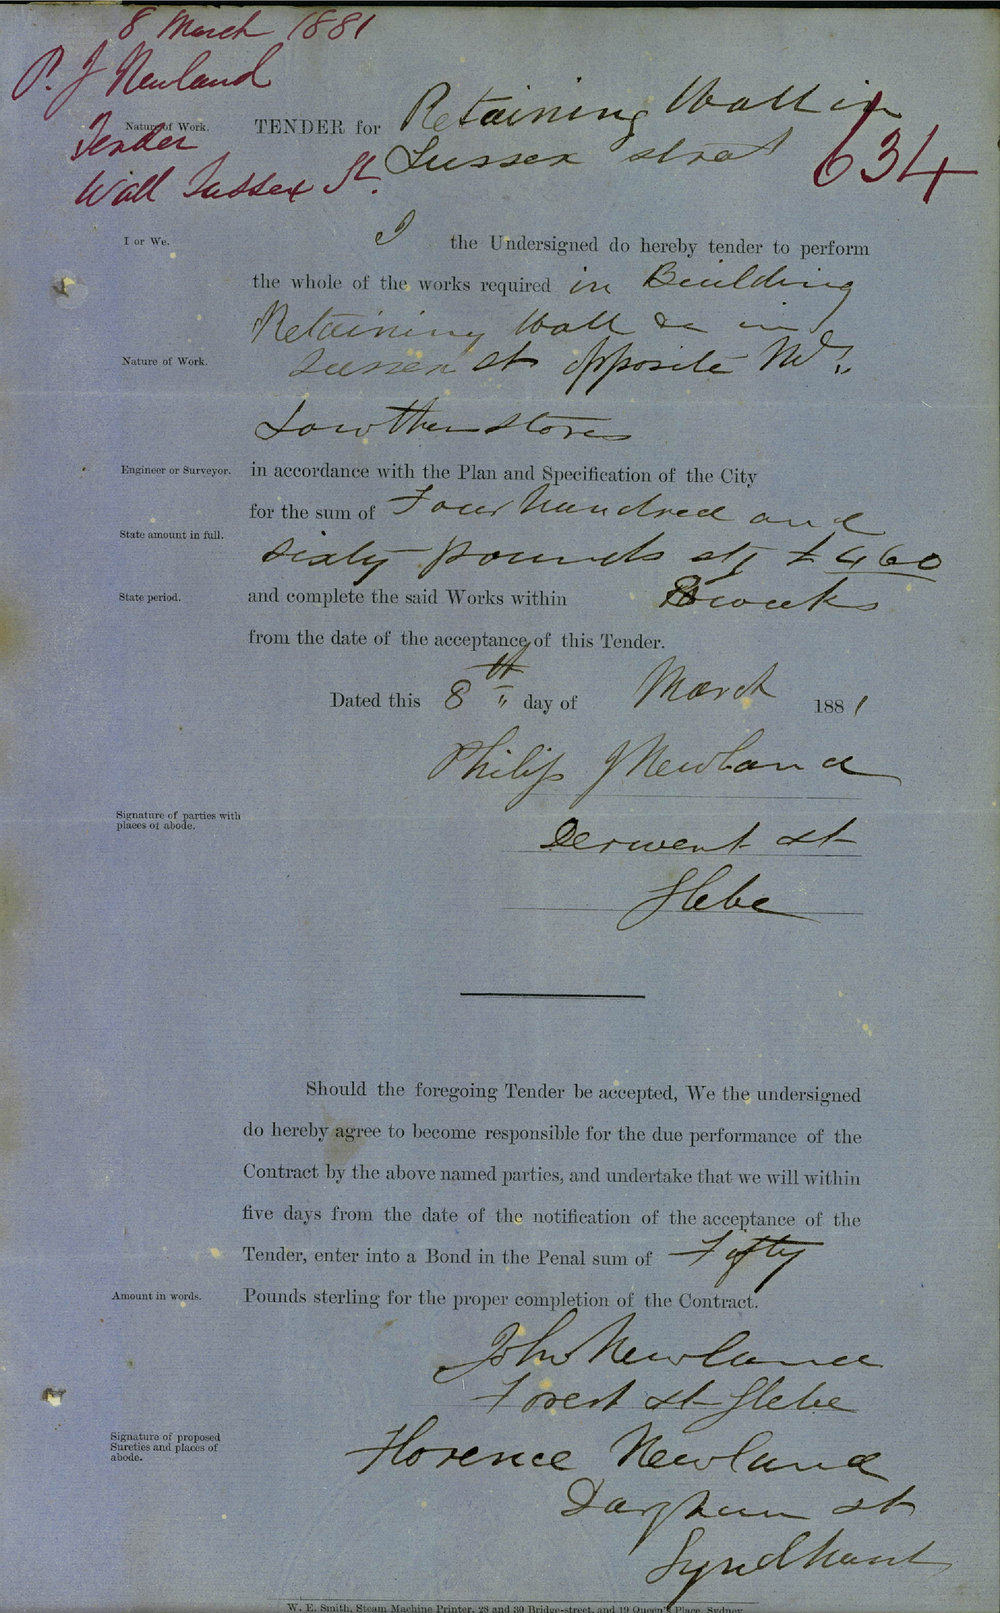 8 March 1881
P. J Newland
Tender
Wall Sussex St.
634
Nature of Work.
TENDER for Retaining Wall in
Sussex street
I or We.
I the Undersigned do hereby tender to perform
the whole of the works required in Building
Retaining Wall &c in
Nature of Work.
Sussex st opposite Mr.
Lowther stores
Engineer or Surveyor.
in accordance with the Plan and Specification of the City
for the sum of Four hundred and
State amount in full.
sixty pounds stg £460
State period.
and complete the said Works within weeks
from the date of the acceptance of this Tender.
Dated this 8th day of March 1881
Philip J Newland
Signature of parties with
places of abode.
Derwent st
Glebe
Should the foregoing Tender be accepted, We the undersigned
do hereby agree to become responsible for the due performance of the
Contract by the above named parties, and undertake that we will within
five days from the date of the notification of the acceptance of the
Tender, enter into a Bond in the Penal sum of Fifty
Amount in words.
Pounds sterling for the proper completion of the Contract.
John Newland
Forest st Glebe
Signature of proposed
Sureties and places of
abode.
Florence Newland
st
Lyndhurst
W. E. Smith, Steam Machine Printer, 28 and 30 Bridge-street, and 19 Queen's Place, Sydney